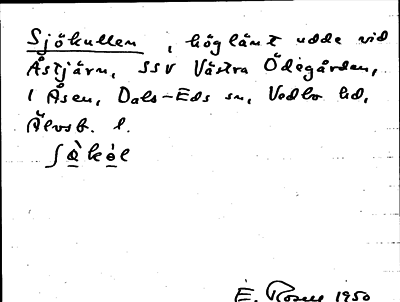 Sjökullen, höglänt udde vid
Åstjärn, SSV Västra Ödegården,
i Åsen, Dals-Eds sn, Vedbo hd,
Älvsb. l.
E. Rosell 1950